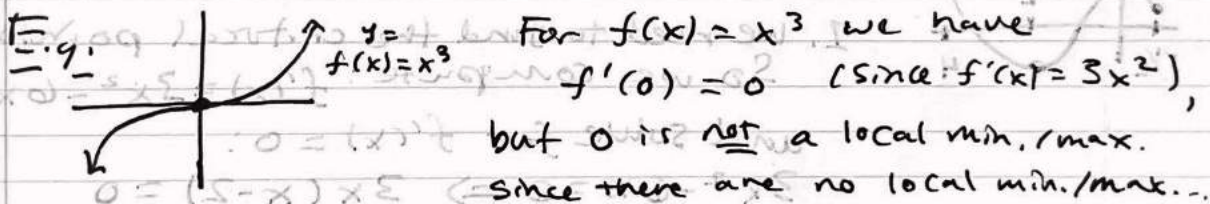 E.g.
y=
f(x)=x³
For f(x) = x³ we have
f'(0) = 0 (since f'(x) = 3x²),
but 0 is not a local min./max.
since there are no local min./max...